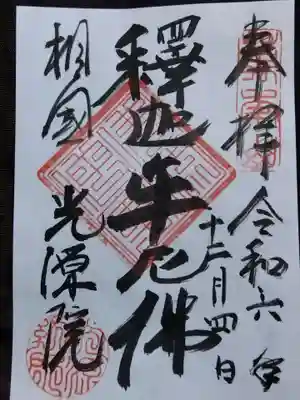 奉拝 令和六年
十二月四日
釋迦牟尼佛
相国 光源院